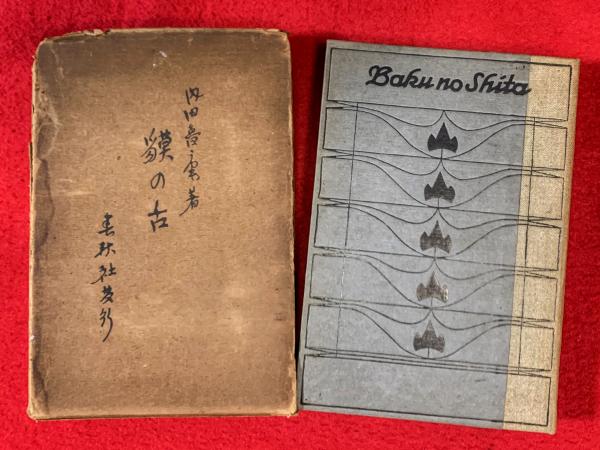 内田魯庵著
貘の舌
春秋社發行
Baku no Shita